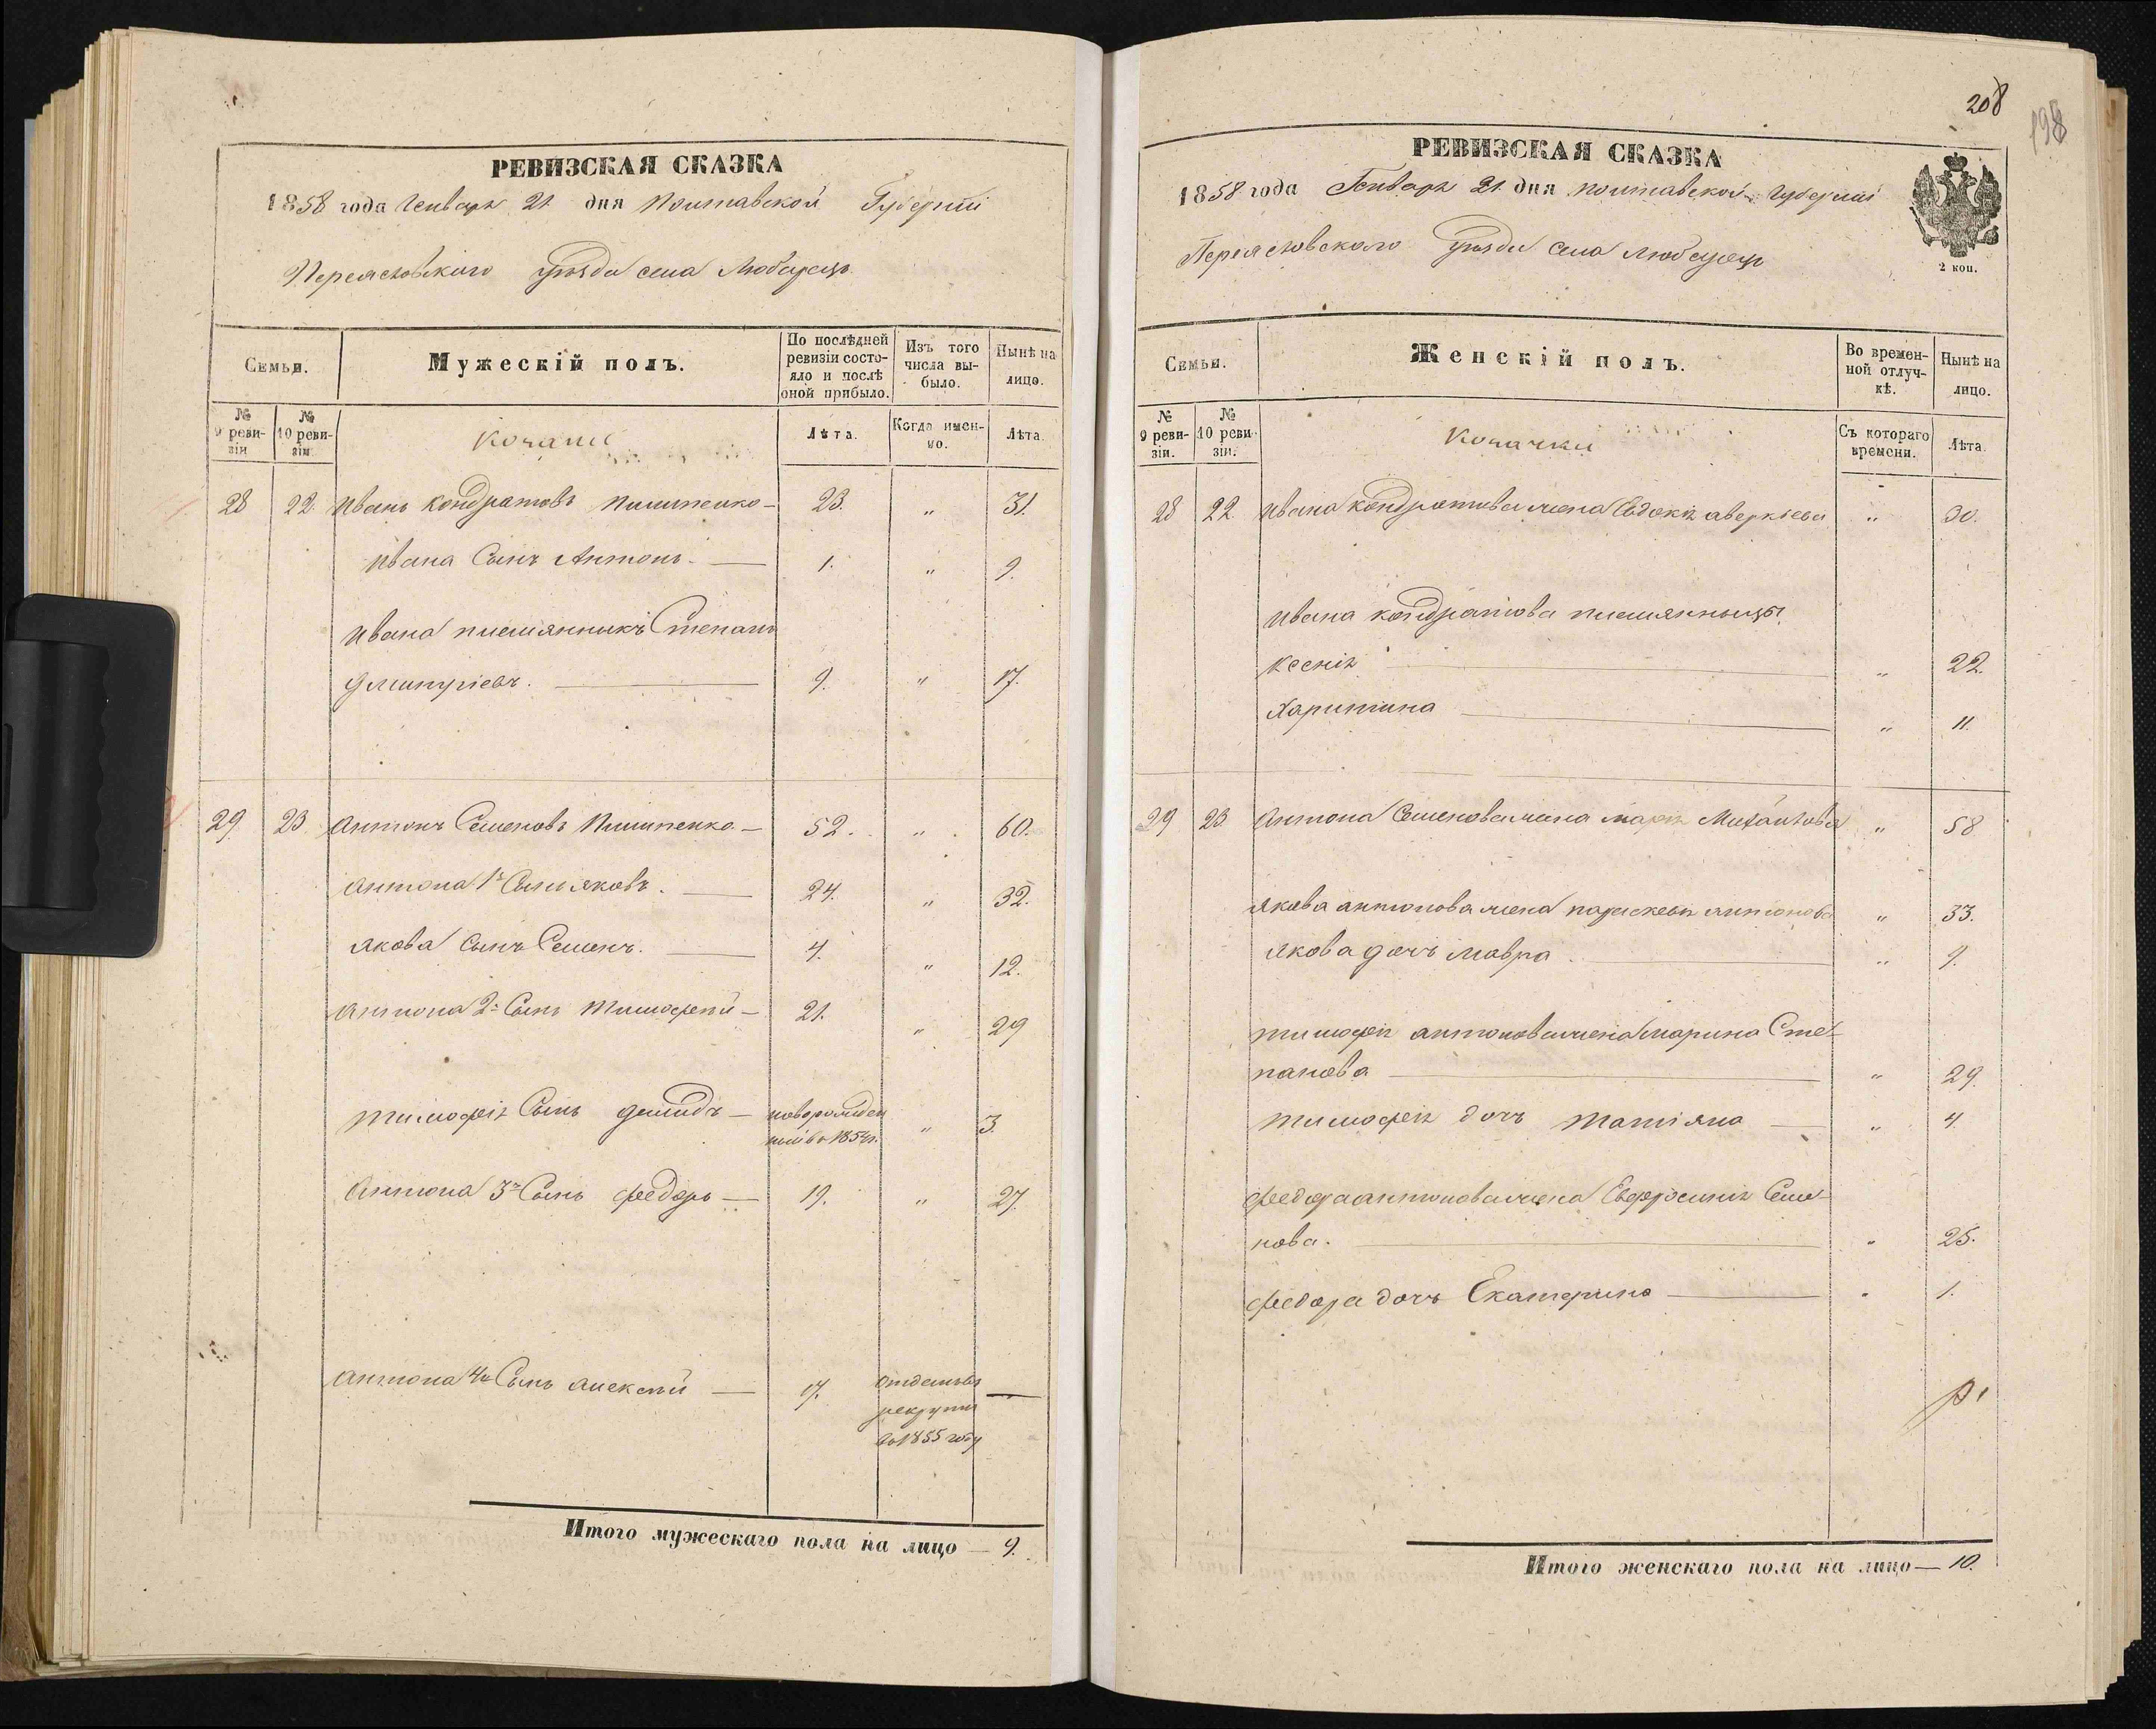 РЕВИЗСКАЯ СКАЗКА
1858 года Генваря 21 дня Полтавской Губерніи
Переяславскаго уѣзда села Любарецъ
Семьи.
Мужескій полъ.
По послѣдней ревизіи состояло и послѣ оной прибыло.
Изъ того числа выбыло.
Нынѣ на лицо.
№ 9 ревизіи
№ 10 ревизіи
Козаки
Лѣта.
Когда именно.
Лѣта.
28 22. Иванъ Кондратовъ Пилипенко — 23. „ 31.
Ивана Сынъ Антонъ. — 1. „ 9.
Ивана племянникъ Степанъ
Дмитріевъ. — 9. „ 17.
29 23. Антонъ Семеновъ Пилипенко — 52. „ 60.
Антона 1й Сынъ Яковъ. — 24. „ 32.
Якова Сынъ Семенъ. — 4. „ 12.
Антона 2й Сынъ Тимофей — 21. „ 29
Тимофея Сынъ Демидъ — новорожден „ 3.
ный въ 1854г.
Антона 3й Сынъ Федоръ — 19. „ 27.
Антона 4й Сынъ Алексѣй — 17. отданъ въ —
рекруты
въ 1855 году
Итого мужескаго пола на лицо — 9.
208
198
РЕВИЗСКАЯ СКАЗКА
1858 года Генваря 21 дня Полтавской Губерніи
Переяславскаго уѣзда села Любарецъ
2 коп.
Семьи.
Женскій полъ.
Во временной отлучкѣ.
Нынѣ на лицо.
№ 9 ревизіи.
№ 10 ревизіи.
Козачки
Съ котораго времени.
Лѣта.
28 22. Ивана Кондратова жена Евдокія Аверкіева „ 30.
Ивана Кондратова племянницы
Ксенія — „ 22.
Харитина — „ 11.
29 23. Антона Семенова жена Марія Михайлова „ 58
Якова Антонова жена Параскевія Антонова „ 33.
Якова дочь Мавра. — „ 9.
Тимофея Антонова жена Марина Сте-
панова — „ 29.
Тимофея дочь Татіяна — „ 4.
Федора Антонова жена Евфросинія Семе-
нова. — „ 25.
Федора дочь Екатерина — „ 1.
Итого женскаго пола на лицо — 10.